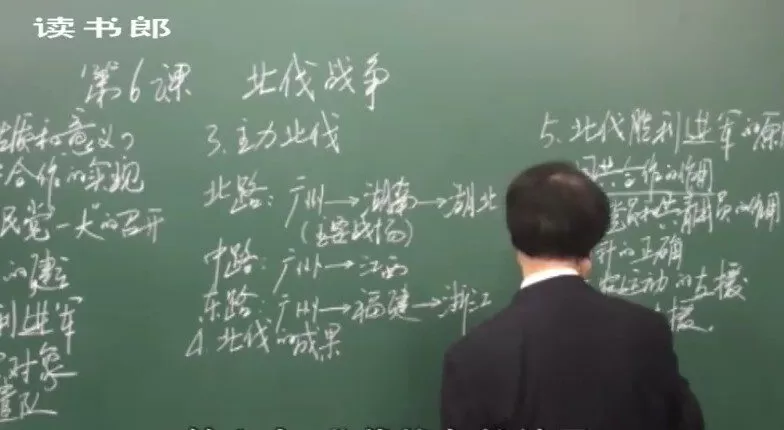 读书郎
第6课 北伐战争
意义
合作的实现
民党一大的召开
的建立
利进军
对象
军队
3、主力北伐
北路：广州→湖南→湖北
(主要战场)
中路：广州→江西
东路：广州→福建→浙江
4、北伐的成果
5、北伐胜利进军的原
国共合作的作用
党员和共青团员的作用
针的正确
运动的支援
援